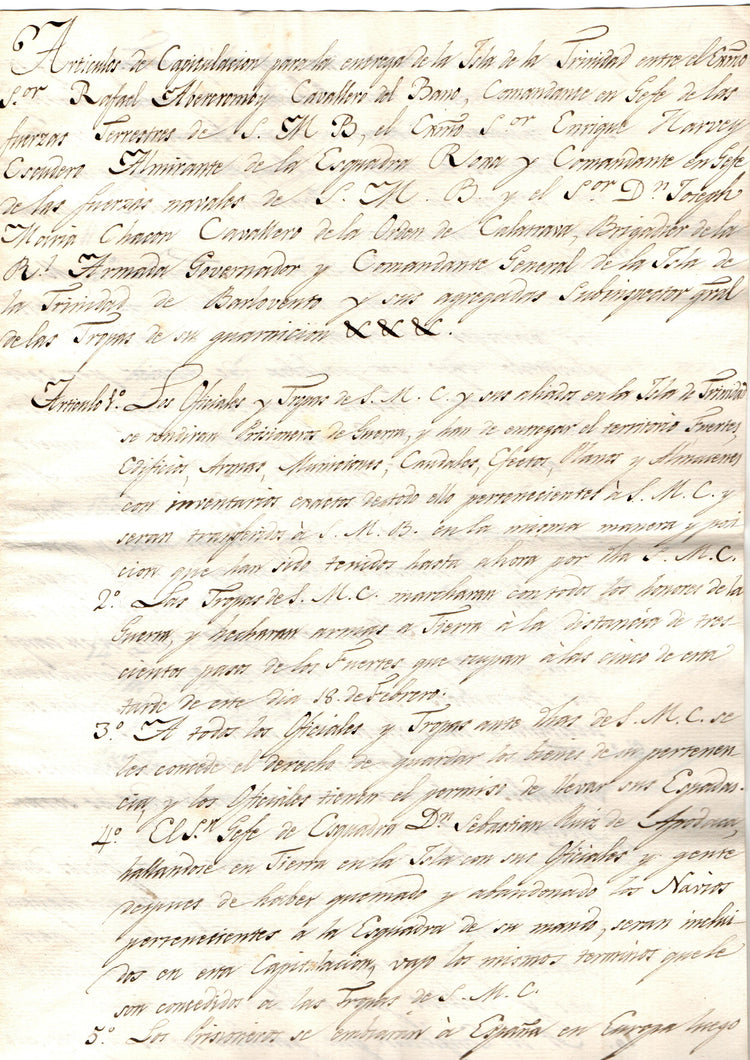 Articulos de Capitulacion para la entrega de la Isla de la Trinidad entre el Exmo
S.or Rafael Abercromey Cavallero del Bano, Comandante en Gefe de las
fuerzas Terrestres de S. M B, el Exmo S.or Enrique Harvey
Escudero Almirante de la Esquadra Roxa y Comandante en Gefe
de las fuerzas navales de S. M. B. y el S.or D.n Joseph
Maria Chacon Cavallero de la Orden de Calatrava, Brigadier de la
R.l Armada Governador y Comandante General de la Isla de
la Trinidad de Barlovento y sus agregados Subinspector Gral
de las Tropas de su guarnicion & & &.
Articulo 1.º Los Oficiales y Tropas de S. M. C. y sus aliados en la Isla de Trinidad
se rendiran Prisioneros de Guerra, y han de entregar el territorio Fuertes,
Edificios, Armas, Municiones, Caudales, Efectos, Planos y Almacenes
con inventarios exactos de todo ello pertenecientes à S. M. C. y
seran trasferidos à S. M. B. en la misma manera y posi
cion que han sido tenidos hasta ahora por dha S. M. C.
2.º Las Tropas de S. M. C. marcharan con todos los honores de la
Guerra, y hecharan armas a Tierra à la distancia de tres
cientos pasos de los Fuertes que ocupan à las cinco de esta
tarde de este dia 18 de Febrero.
3.º A todos los Oficiales y Tropas ante dhas de S. M. C. se
les concede el derecho de guardar los bienes de su pertenen
cia, y los Oficiales tienen el permiso de llevar sus Espadas.
4.º El S.r Gefe de Esquadra D.n Sebastian Ruiz de Apodaca,
hallandose en Tierra en la Isla con sus Oficiales y gente
despues de haber quemado y abandonado los Navios
pertenecientes a la Esquadra de su mando, seran inclui
dos en esta Capitulacion, vajo los mismos terminos que le
son concedidos a las Tropas de S. M. C.
5.º Los Prisioneros se embiarán à España en Europa luego